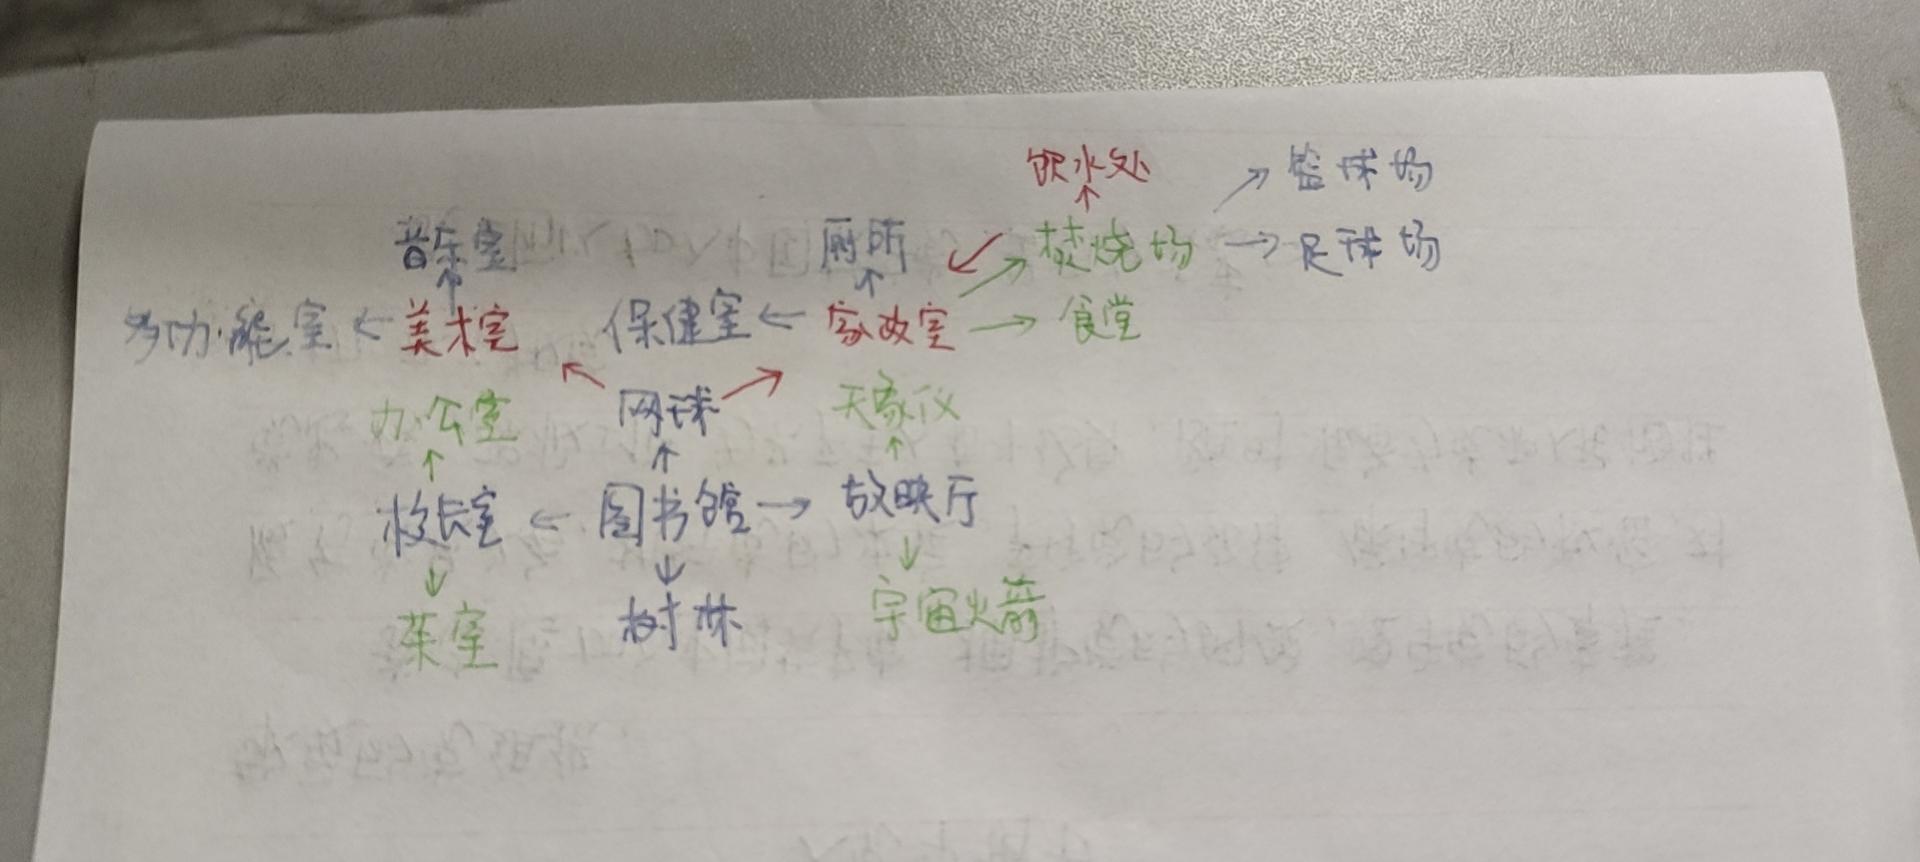 饮水处 → 篮球场
音乐室 厕所 焚烧场 → 足球场
多功能室 ← 美术室 保健室 ← 家政室 → 食堂
办公室 网球 天象仪
校长室 ← 图书馆 → 放映厅
茶室 树林 宇宙火箭